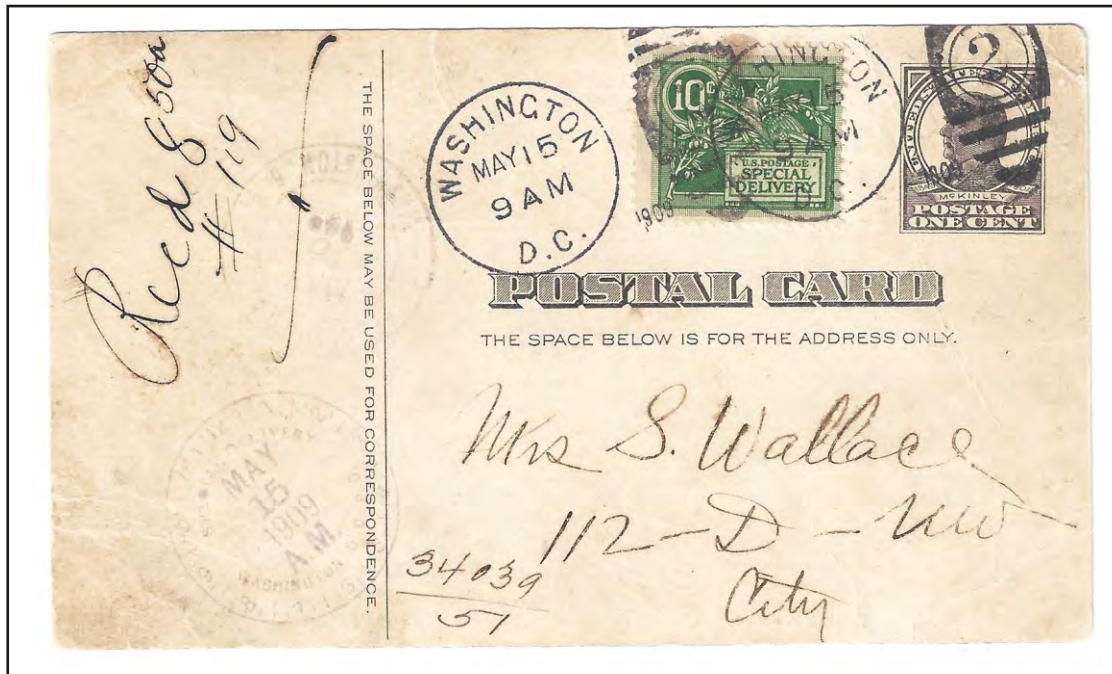 Recd 850a
#119
THE SPACE BELOW MAY BE USED FOR CORRESPONDENCE.
WASHINGTON
MAY 15
9 AM
D.C.
1909
10c
U.S. POSTAGE
SPECIAL
DELIVERY
HINGTON
15
9 AM
D.C.
2
1909
McKINLEY
POSTAGE
ONE CENT
POSTAL CARD
THE SPACE BELOW IS FOR THE ADDRESS ONLY.
Mrs S. Wallace
112 - D - NW
City
34039
51
MAY
15
1909
A.M.
WASHINGTON